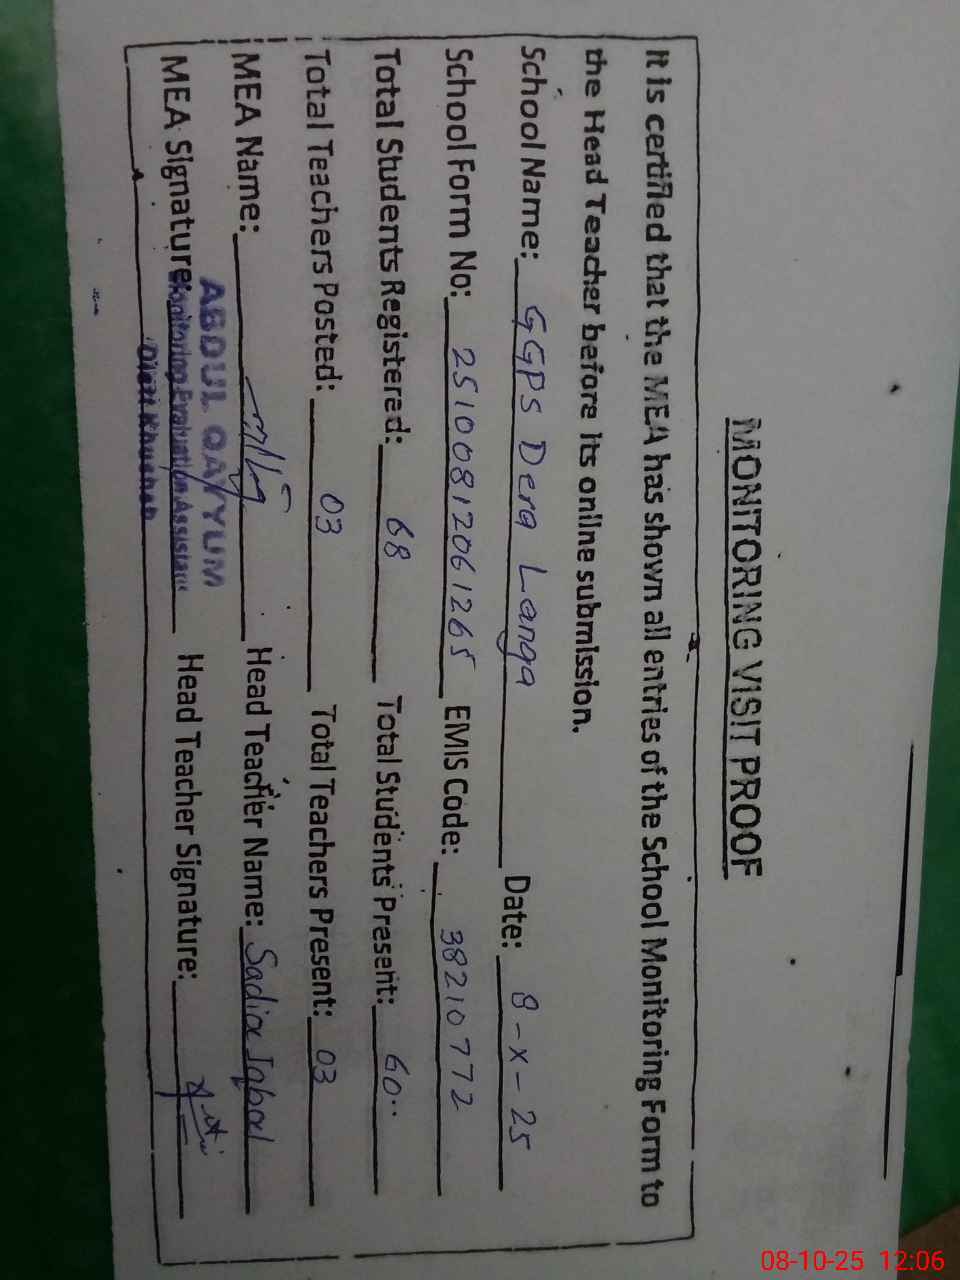 MONITORING VISIT PROOF
It is certified that the MEA has shown all entries of the School Monitoring Form to
the Head Teacher before its online submission.
School Name: GGPS Dera Langa Date: 8-X-25
School Form No: 25100812061265 EMIS Code: 38210772
Total Students Registered: 68 Total Students Present: 60
Total Teachers Posted: 03 Total Teachers Present: 03
MEA Name: Head Teacher Name: Sadia Iqbal
ABDUL QAYYUM
MEA Signature: Head Teacher Signature:
Monitoring Evaluation Assistant
Distt Khushab
08-10-25 12:06